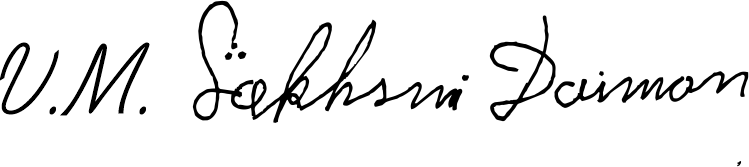 V.M. Säkhsni Daimon